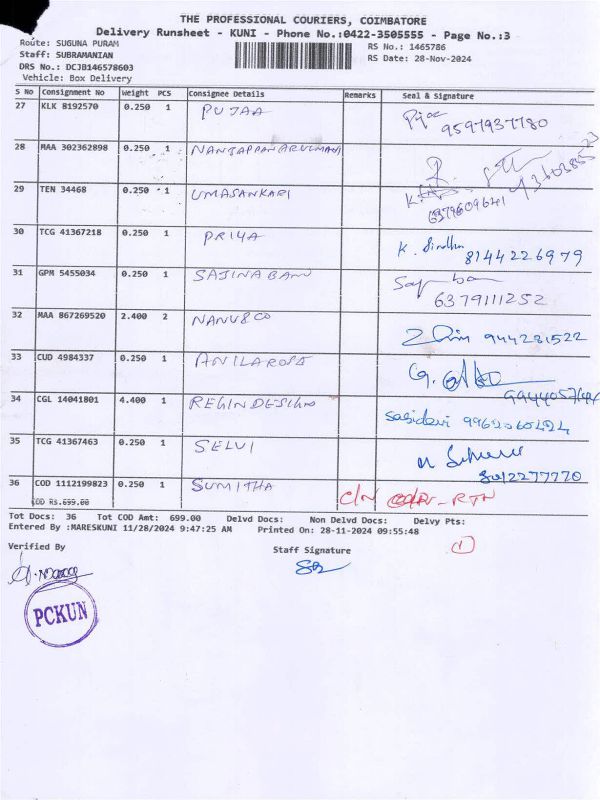 THE PROFESSIONAL COURIERS, COIMBATORE
Delivery Runsheet - KUNI - Phone No.:0422-3505555 - Page No.:3
Route: SUGUNA PURAM
RS No.: 1465786
Staff: SUBRAMANIAN
RS Date: 28-Nov-2024
DRS No.: DCJB146578603
Vehicle: Box Delivery
S No Consignment No Weight PCS Consignee Details Remarks Seal & Signature
27 KLK 8192570 0.250 1 PUJAA
9597937780
28 MAA 302362898 0.250 1
29 TEN 34468 0.250 1 UMASANKARI
6379609641
30 TCG 41367218 0.250 1 PRIYA K. Sindhu 8144226979
31 GPM 5455034 0.250 1 SAJINA BANU
6379111252
32 MAA 867269520 2.400 2 NANU & CO 944231522
33 CUD 4984337 0.250 1 ANILA ROSE
34 CGL 14041801 4.400 1 REGIN DESIGN sasidevi
35 TCG 41367463 0.250 1 SELVI
8012277770
36 COD 1112199823 0.250 1 SUMITHA C/N RTN
OD RS.699.00
Tot Docs: 36 Tot COD Amt: 699.00 Delvd Docs: Non Delvd Docs: Delvy Pts:
Entered By :MARESKUNI 11/28/2024 9:47:25 AM Printed On: 28-11-2024 09:55:48
1
Verified By
Staff Signature
PCKUN